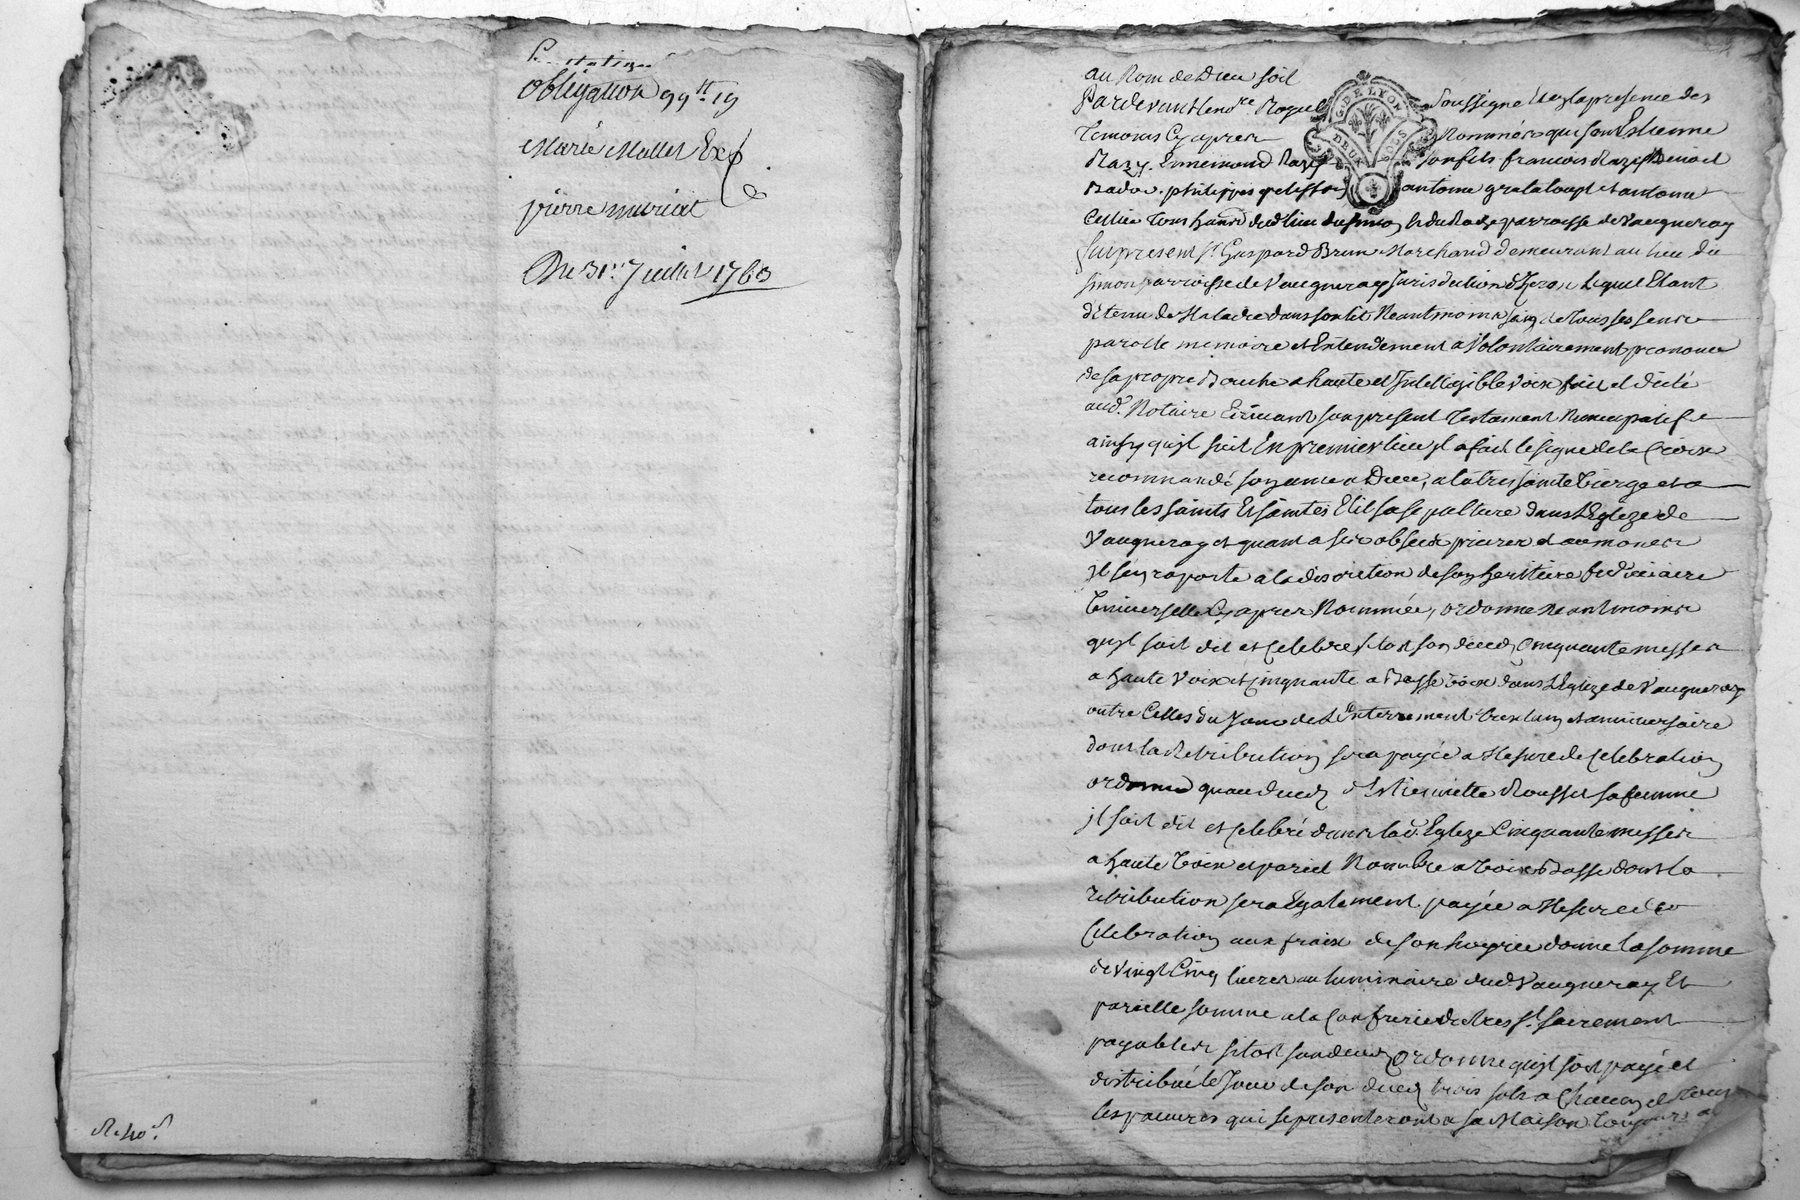 obligation 99 tt 19
Marie Mollet Exp
pierre muriat
Du 31e Juillet 1763
R. 40 s
au Nom de Dieu soit
Pardevant Soussigné et en la presence des
Temoins Cy apres Nommés qui sont Estienne
Razy. Ennemond Razy son fils francois Razy Benoit
Badoe. philippe pelisson antoine grataloup et antoine
Cellier Tous hants dud lieu du simon paroisse de Vaugneray
fut present Sr. Gaspard Brun Marchand demeurant au lieu du
simon parroisse de Vaugneray Jurisdiction Lequel Etant
détenu de Maladie dans son lit Neantmoins sain de tous ses sens
parolle memoire et Entendement a Volontairement prononcé
de sa propre Bouche a haute et Intelligible Voix fait et dicté
aud. Notaire Ecrivant son present Testament Noncupatif
ainsy qu'il suit En premier lieu Il a fait le signe de la Croix
recommandé son ame a Dieu, a la tres sainte Vierge et a
tous les saints Et saintes Elit sa sepulture dans L'Eglize de
Vaugneray et quant a ses obseques prieres et aumones
Il s'en raporte a la discretion de son heritiere fiduciaire
Universelle Cy apres Nommée, ordonne Neantmoins
qu'il soit dit et Celebré sitost son decedz Cinquante messes
a haute Voix et Cinquante a Basse Voix dans L'Eglize de Vaugneray
outre Celles du Jour de L'Enterrement et anniversaire
dont la Retribution sera payée a Mesure de Celebration
ordonne quau decedz d'Estiennette Rousset sa femme
il soit dit et Celebré dans lad. Eglize Cinquante messes
a haute Voix et pareil Nombre a Voix Basse dont la
retribution sera Egalement payée a Mesure de
Celebration aux fraix de son hoyrie donne la somme
de Vingt Cinq livres au luminaire dud Vaugneray Et
pareille somme a la Confrerie du tres St. Sacrement
payables sitost son decedz Ordonne quil soit payé et
distribué le Jour de son decedz trois sols a Chacun de tous
les pauvres qui se presenteront a sa Maison